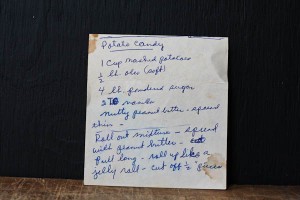 Potato Candy
1 Cup mashed potatoes
1/2 lb. oleo (soft)
4 lb. powdered sugar
3 T
nutty peanut butter - spread
thin -
Roll out mixture - spread
with peanut butter - cut
full long - roll up like a
jelly roll - cut off 1/2" pieces